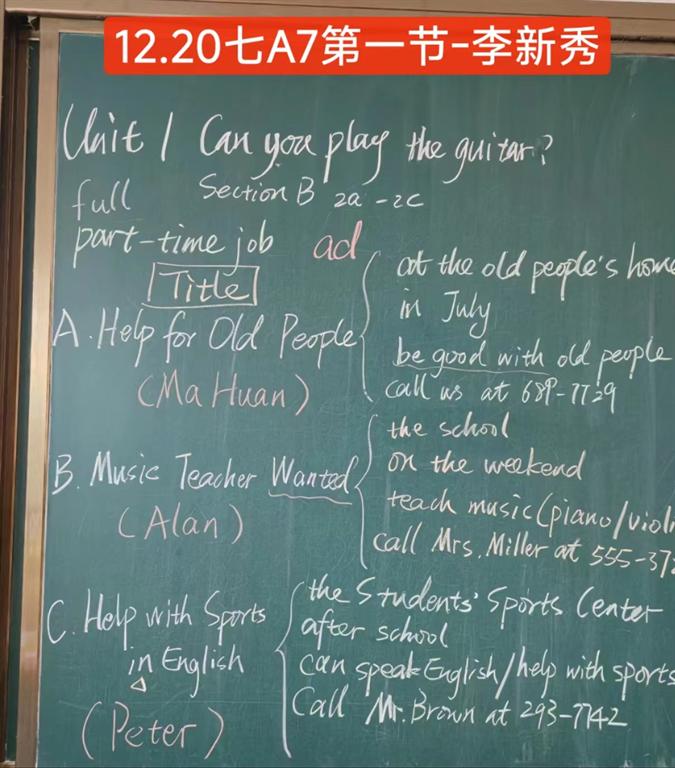 12.20七A7第一节-李新秀
Unit 1 Can you play the guitar?
Section B 2a-2c
full
part-time job ad
Title
A. Help for Old People
(Ma Huan)
at the old people's home
in July
be good with old people
call us at 689-7729
B. Music Teacher Wanted
(Alan)
the school
on the weekend
teach music (piano/violi
call Mrs. Miller at 555-37
C. Help with Sports
in English
(Peter)
the Students' Sports Center
after school
can speak English/help with sports
Call Mr. Brown at 293-7742